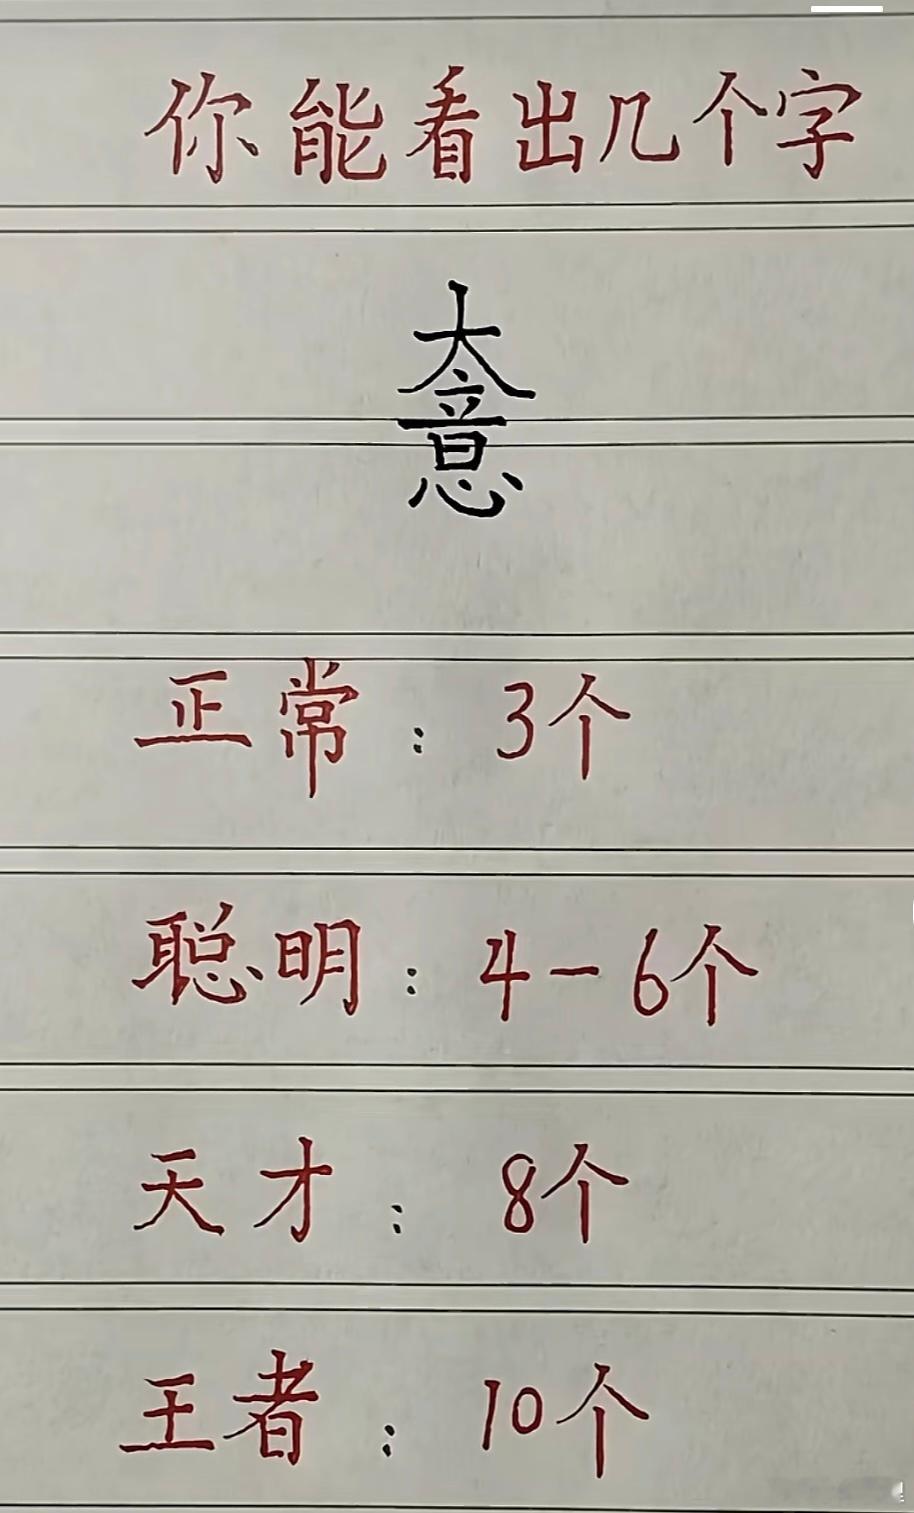 你能看出几个字
大意
正常：3个
聪明：4-6个
天才：8个
王者：10个